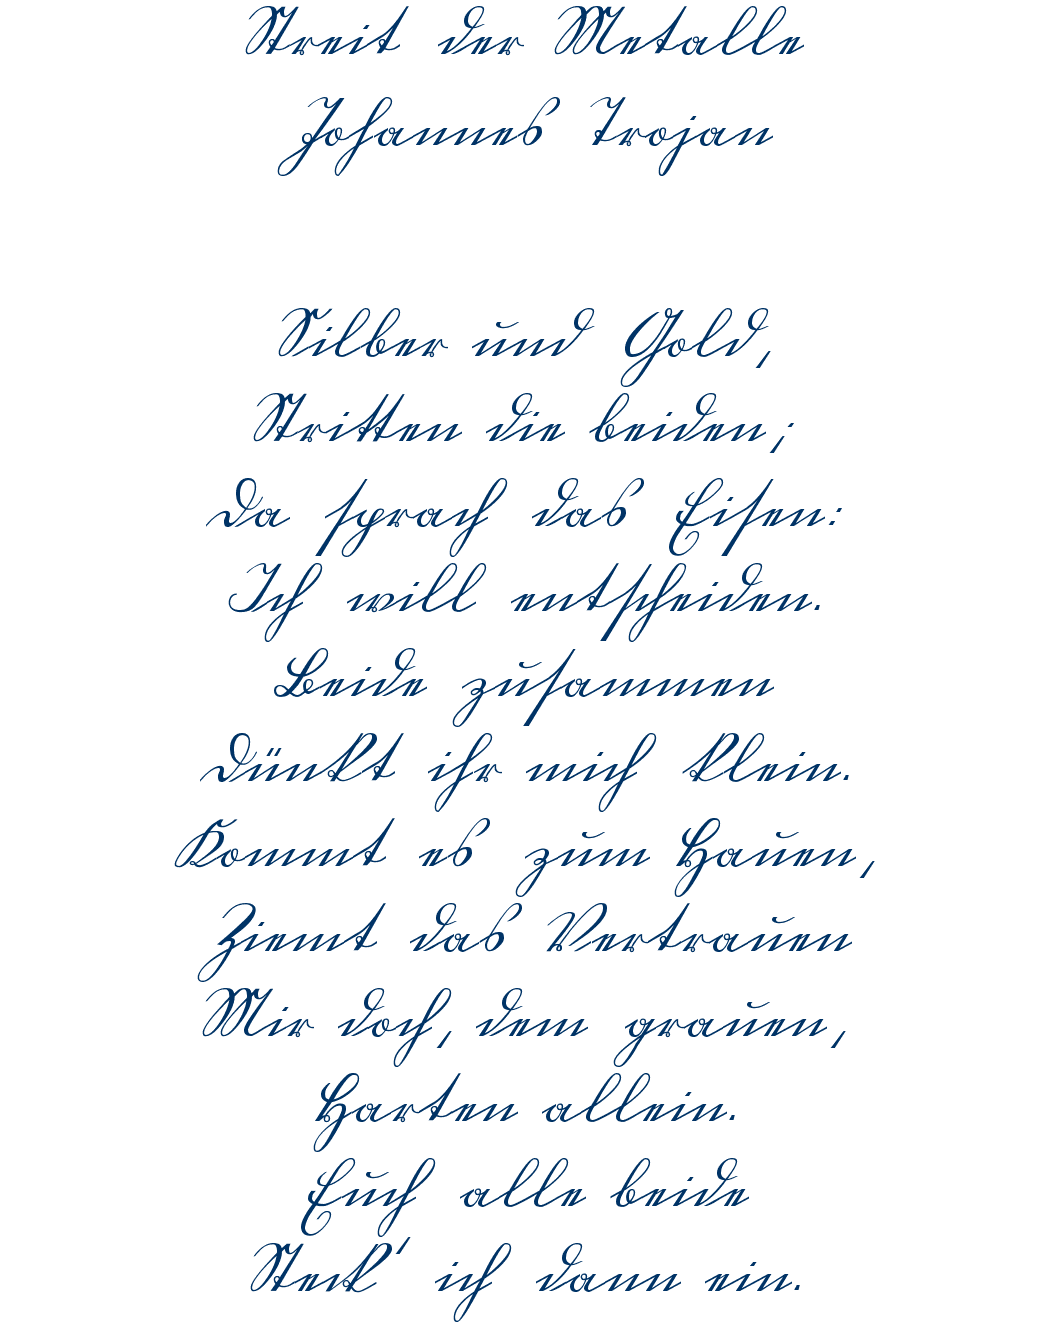 Streit der Metalle
Johannes Trojan
Silber und Gold,
Stritten die beiden;
Da sprach das Eisen:
Ich will entscheiden.
Beide zusammen
Dünkt ihr mich klein.
Kommt es zum Hauen,
Ziemt das Vertrauen
Mir doch, dem grauen,
Harten allein.
Euch alle beide
Steck' ich dann ein.